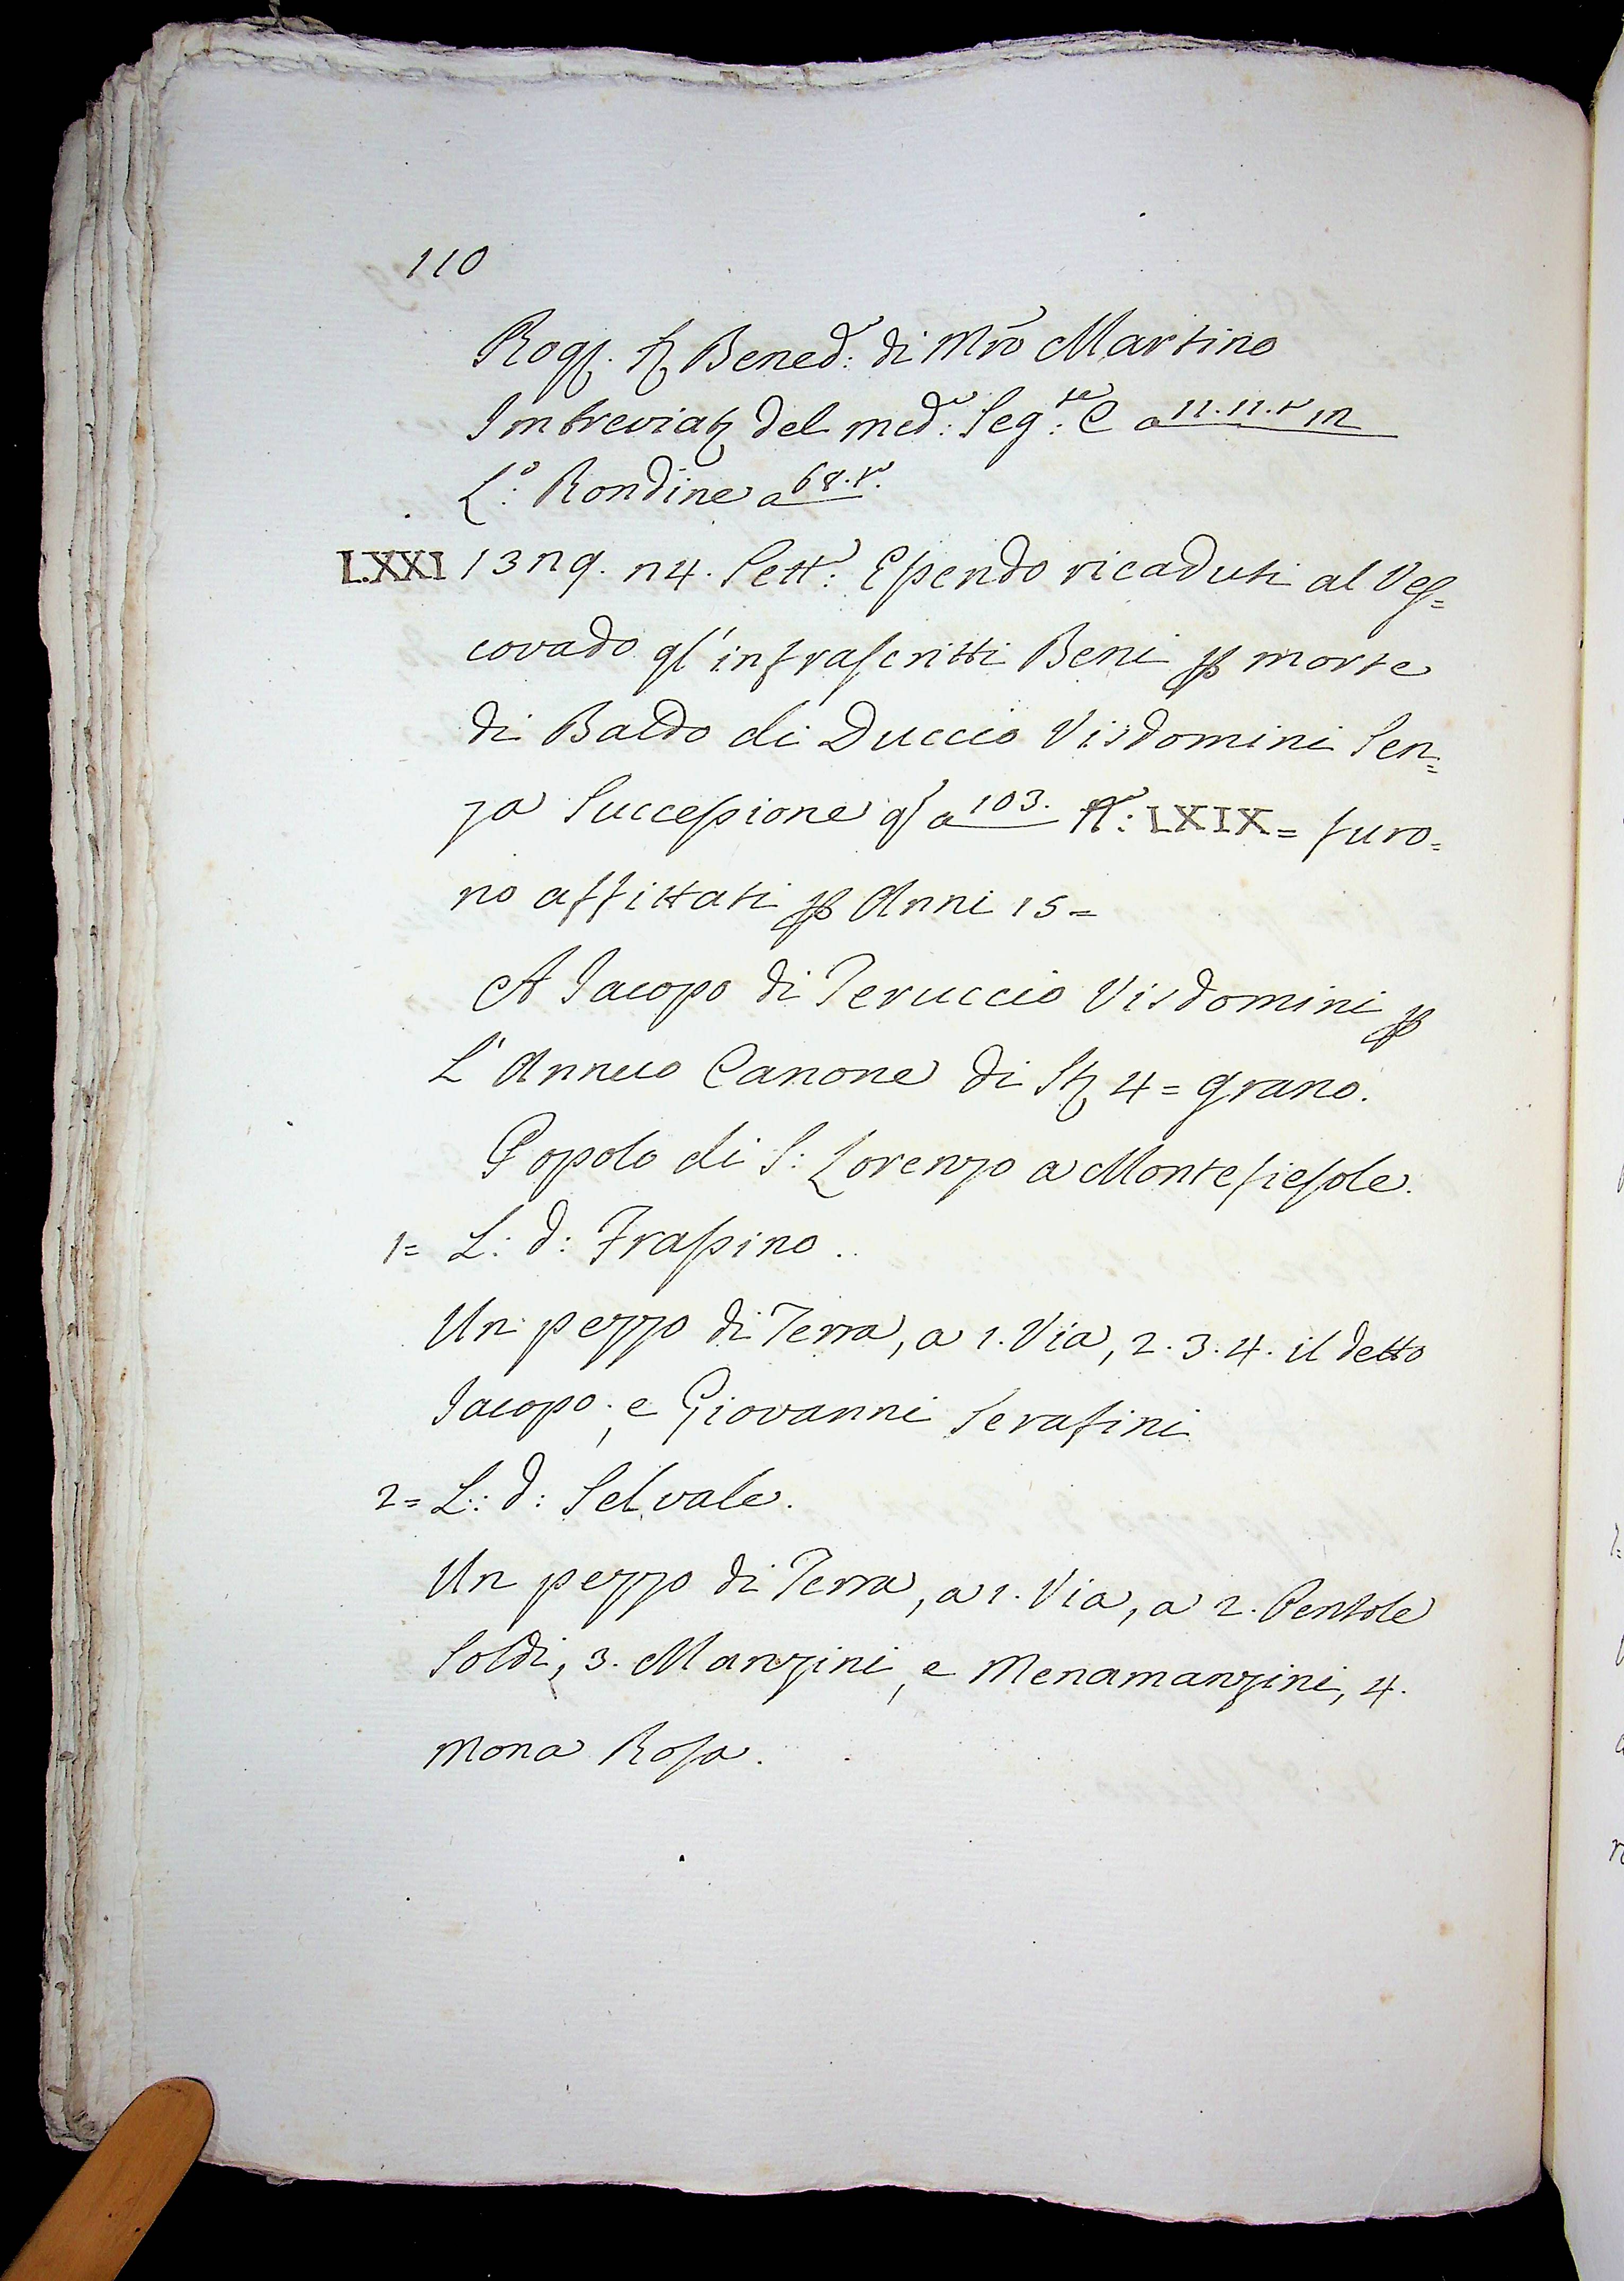 110
Rog. Bened: di Mro Martino
Imbreviat del med: Seg:te C a 11.11.t in
L:o Rondine a 68.t.
LXXI 1329. 24. Sett: Essendo ricaduti al Ves=
covado gl'infrascritti Beni p morte
di Baldo di Duccio Visdomini Sen=
za Successione ql a 103. N: LXIX = furo=
no affittati p Anni 15=
A Jacopo di Peruccio Visdomini p
L'Annuo Canone di St 4= grano.
Popolo di S: Lorenzo a Montefiesole.
1= L: d: Frassino.
Un pezzo di Terra, a 1. Via, 2. 3. 4. il detto
Jacopo, e Giovanni Serafini
2= L: d: Selvale.
Un pezzo di Terra, a 1. Via, a 2. Pentole
Soldi, 3. Manzini, e Menamanzini, 4.
Mona Rosa.